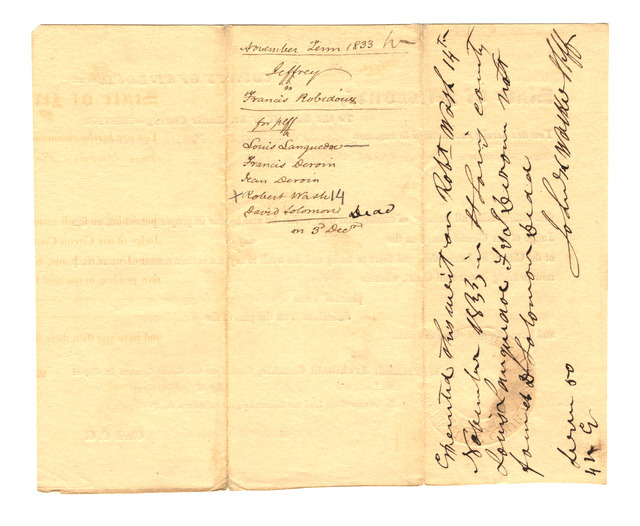 November Term 1833
Jeffrey
vs
Francis Robedoux
for plff
Louis Languedoc
Francis Deroin
Jean Deroin
x Robert Wash 14
David Solomon Dead
on 3d Decr
Executed this writ on Robt Wash 14th
November 1833, in St Louis county
Louis Languedoc F & J Deroin not
found D Solomon Dead
John K Walker Shff
50